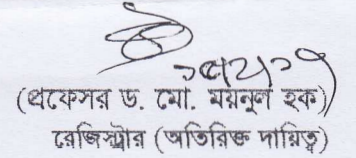 (প্রফেসর ড. মো. ময়নুল হক)
রেজিস্ট্রার (অতিরিক্ত দায়িত্ব)